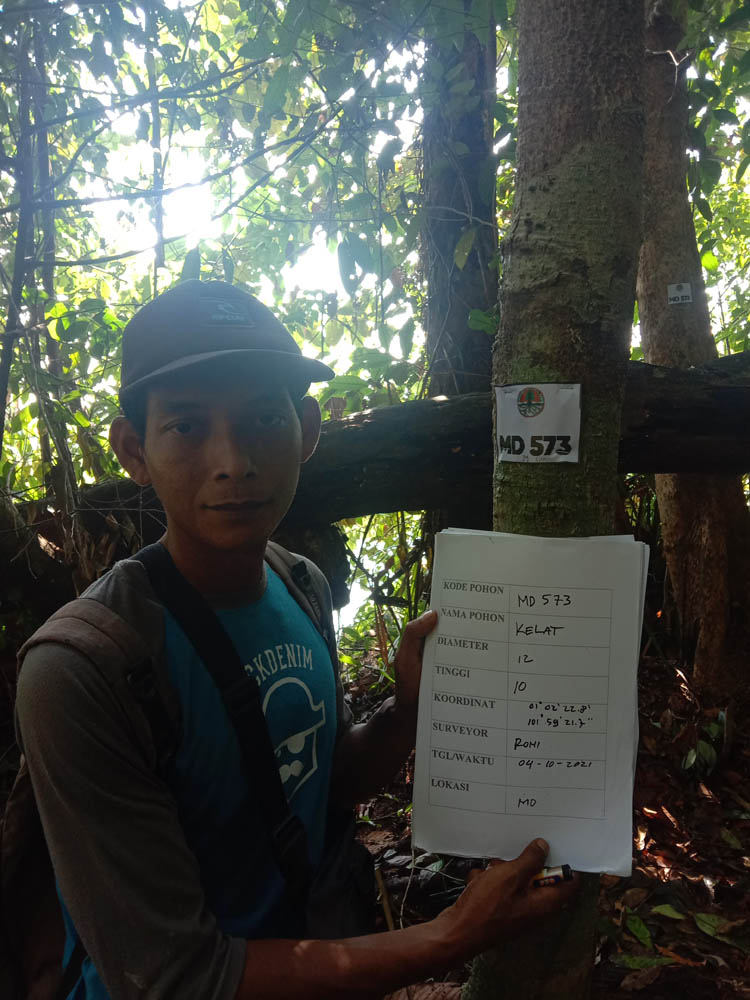 RIP CURL
MD 511
MD 573
CKDENIM
KODE POHON MD 573
NAMA POHON KELAT
DIAMETER 12
TINGGI 10
KOORDINAT 01° 02' 22.8'
101° 59' 21.7"
SURVEYOR ROHI
TGL/WAKTU 04-10-2021
LOKASI MD